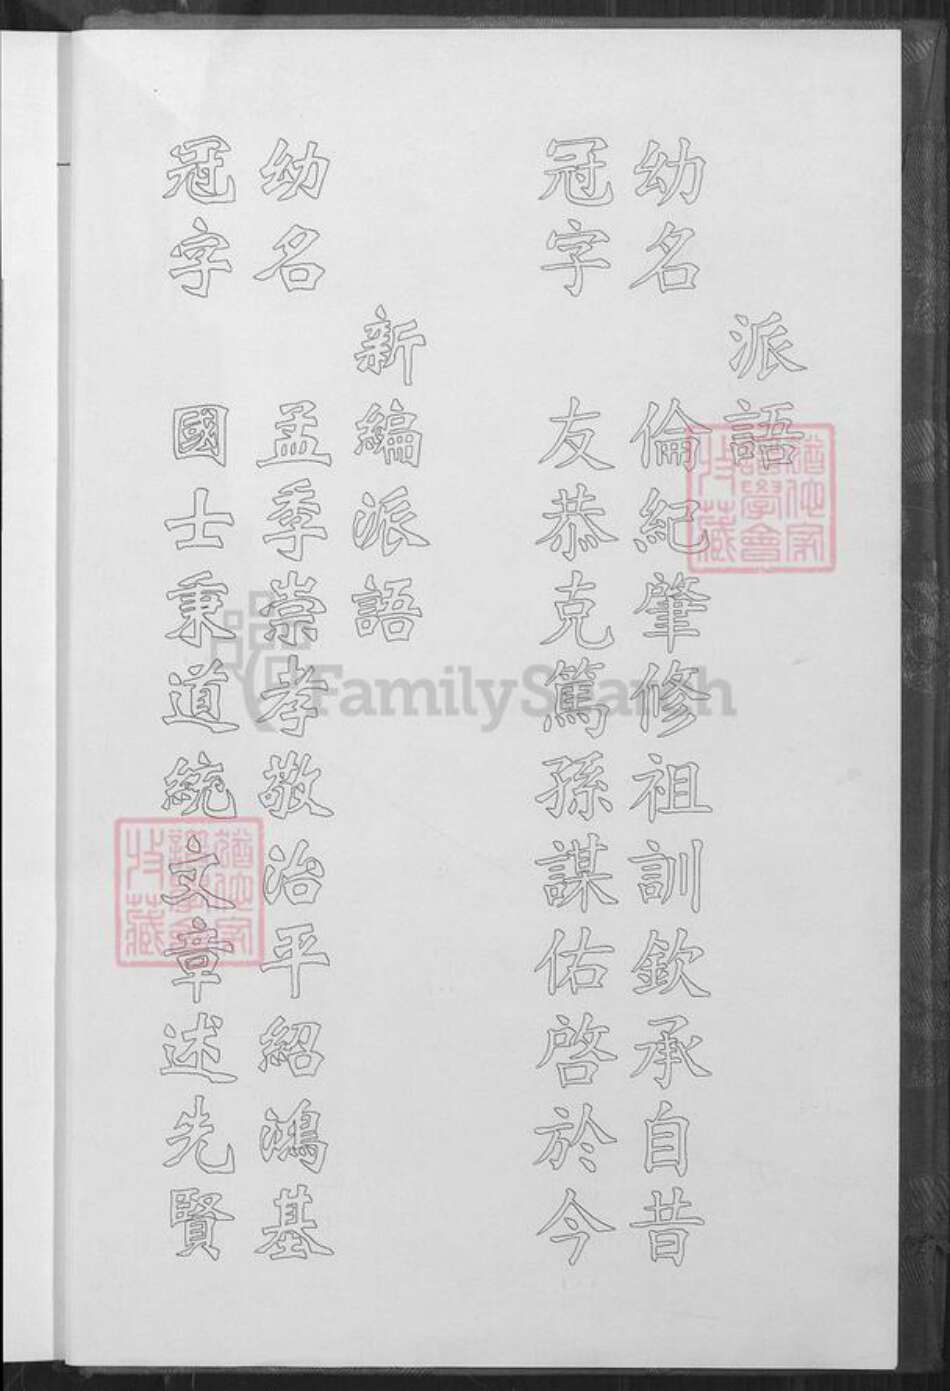 派語
幼名 倫紀肇修祖訓欽承自昔
冠字 友恭克篤孫謀佑啓於今
新編派語
幼名 孟季崇孝敬治平紹鴻基
冠字 國士秉道統文章述先賢
FamilySearch